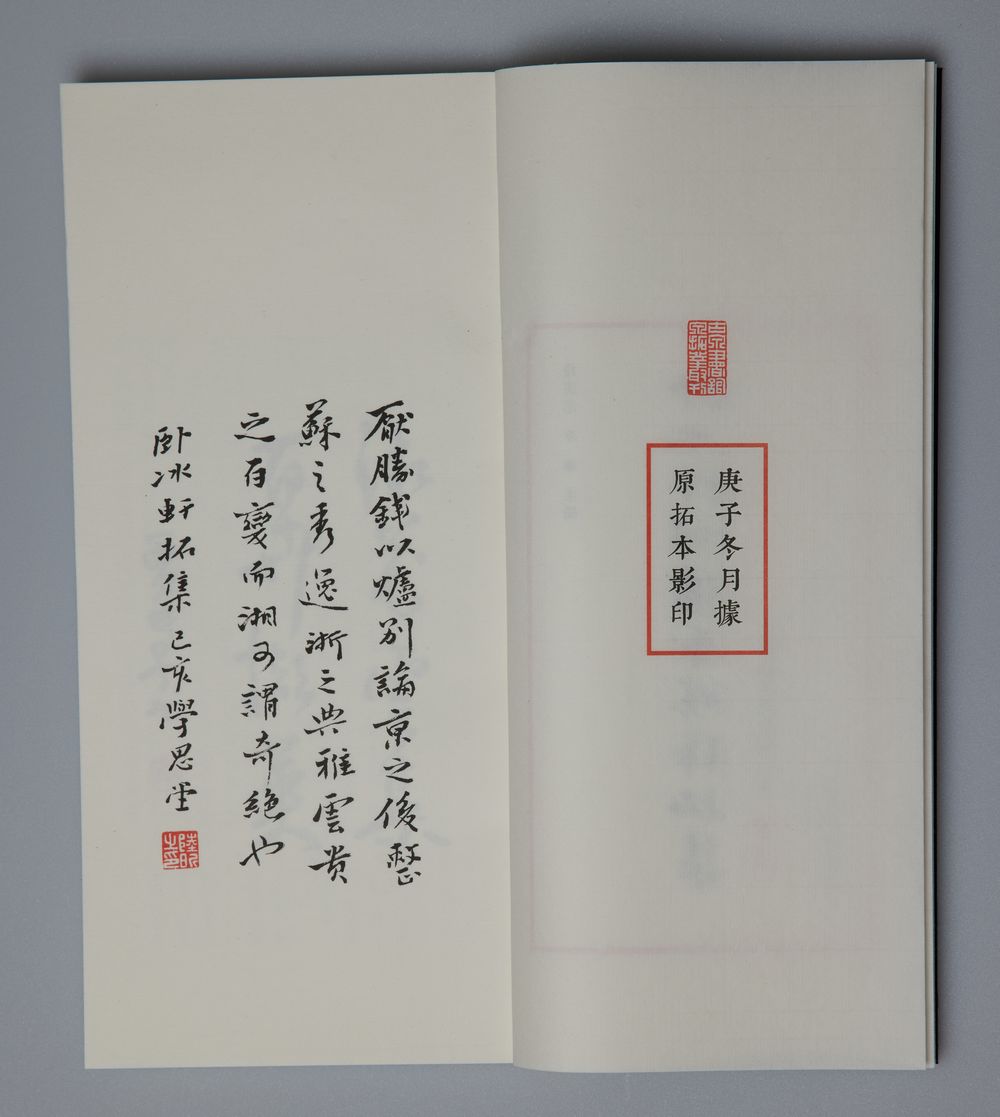 庚子冬月據
原拓本影印
厭勝錢以爐別論京之俊整
蘇之秀逸浙之典雅雲貴
之百變而湘可謂奇絕也
卧冰軒拓集己亥學思堂